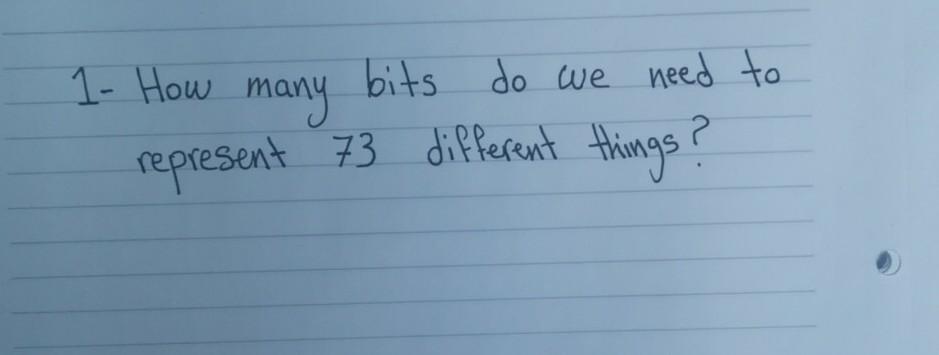 1- How many bits do we need to
represent 73 different things?